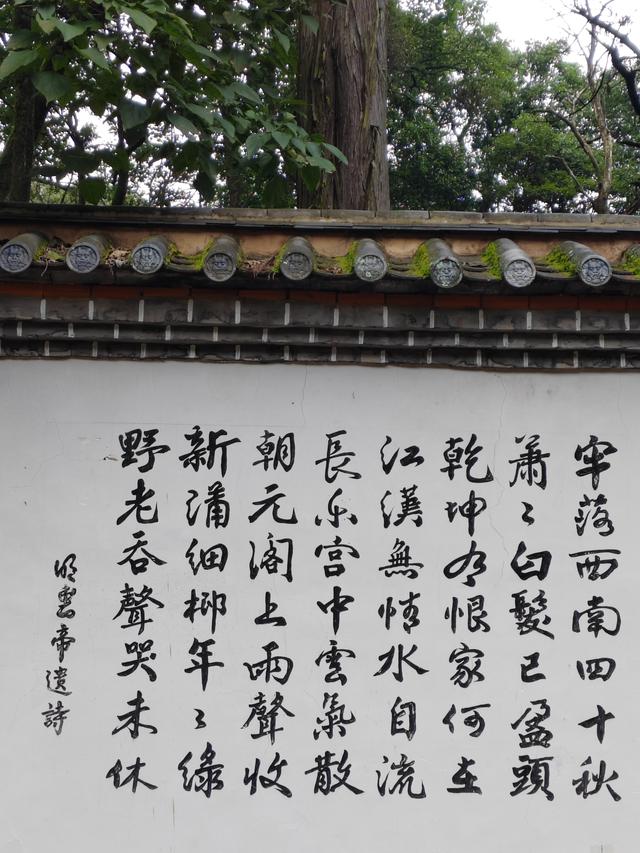 牢落西南四十秋
蕭〻白髮已盈頭
乾坤有恨家何在
江漢無情水自流
長樂宮中雲氣散
朝元閣上雨聲收
新蒲細柳年〻綠
野老吞聲哭未休
明惠帝遺詩